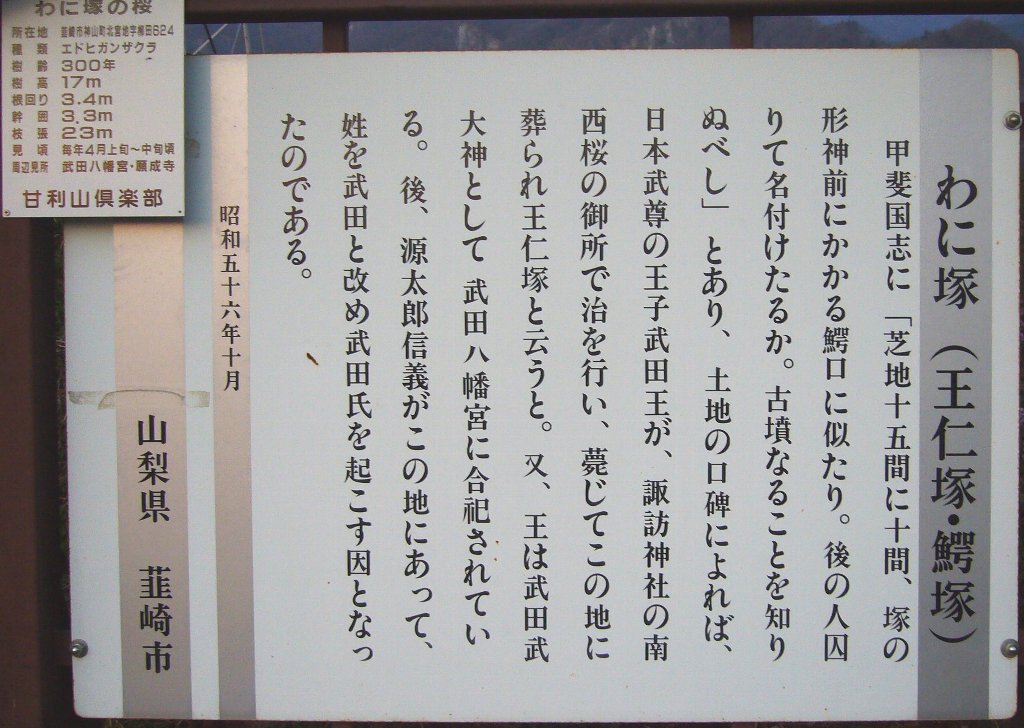 わに塚の桜
所在地 韮崎市神山町北宮地字柳田624
種類 エドヒガンザクラ
樹齢 300年
樹高 17m
根回り 3.4m
幹囲 3.3m
枝張 23m
見頃 毎年4月上旬~中旬頃
周辺見所 武田八幡宮・願成寺
甘利山倶楽部
わに塚(王仁塚・鰐塚)
甲斐国志に「芝地十五間に十間、塚の
形神前にかかる鰐口に似たり。後の人囚
りて名付けたるか。古墳なることを知り
ぬべし」とあり、土地の口碑によれば、
日本武尊の王子武田王が、諏訪神社の南
西桜の御所で治を行い、薨じてこの地に
葬られ王仁塚と云うと。又、王は武田武
大神として 武田八幡宮に合祀されてい
る。後、源太郎信義がこの地にあって、
姓を武田と改め武田氏を起こす因となっ
たのである。
昭和五十六年十月
山梨県 韮崎市